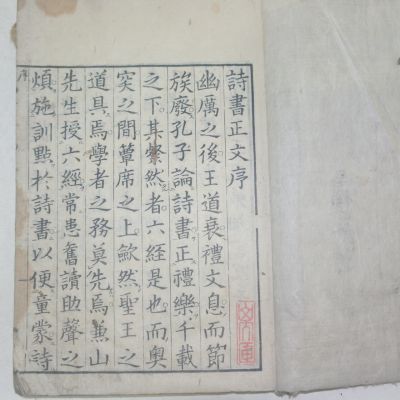 詩書正文序
幽厲之後王道衰禮文息而節
族廢孔子論詩書正禮樂千載
之下其粲然者六經是也而奧
窔之間簟席之上歛然聖王之
道具焉學者之務莫先焉兼山
先生授六經常患舊讀助聲之
煩施訓點於詩書以便童蒙詩
序